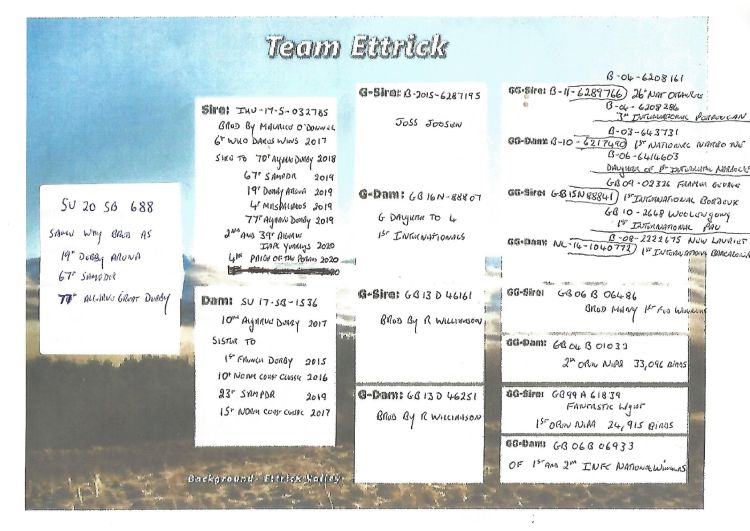 Team Ettrick
SU 20 SB 688
SAME WAY BRED AS
19th DERBY ARONA
67th SAMPDR
77th ALGARVE GREAT DERBY
Sire: IHU-17-S-032785
BRED BY MAURICE O'DONNELL
6th WHO DARES WINS 2017
SIRE TO 70th ALGARVE DERBY 2018
67th SAMPDR 2019
19th DERBY ARONA 2019
4th 2019
77th ALGARVE DERBY 2019
2ND AND 39th
2020
4th PRIDE OF THE 2020
Dam: SU 17-SB-1536
10th ALGARVE DERBY 2017
SISTER TO
1st FRENCH DERBY 2015
10th NORTH COAST CLASSIC 2016
23rd SAMPDR 2019
15th NORTH COAST CLASSIC 2017
G-Sire: B-2015-6287195
JOSS JOOSEN
G-Dam: GB16N-88807
G DAUGHTER TO 4
1st INTERNATIONALS
G-Sire: GB13 D 46161
BRED BY R WILLIAMSON
G-Dam: GB13 D 46251
BRED BY R WILLIAMSON
B-04-6208161
GG-Sire: B-11-6289766 26th NAT
B-04-6208286
3rd INTERNATIONAL PERPIGNAN
B-03-643731
GG-Dam: B-10-6217490 1st NATIONAL
B-06-6414603
DAUGHTER OF 1st INTERNATIONAL NARBONNE
GB09-02326 FRANCIE GEORGE
GG-Sire: GB15N88841 1st INTERNATIONAL BORDEUX
GB10-2668
1st INTERNATIONAL PAU
B-08-2222675 NEW LAURIET
GG-Dam: NL-14-1040772 1st INTERNATIONAL BARCELONA
GG-Sire: GB06 B 06486
BRED MANY 1st FED WINNERS
GG-Dam: GB04 B 01033
2nd OPEN NIPA 33,096 BIRDS
GG-Sire: GB99 A 61839
FANTASTIC
1st OPEN NIPA 24,915 BIRDS
GG-Dam: GB06B 06933
OF 1st AND 2nd INFC NATIONAL WINNERS
Background - Ettrick Valley